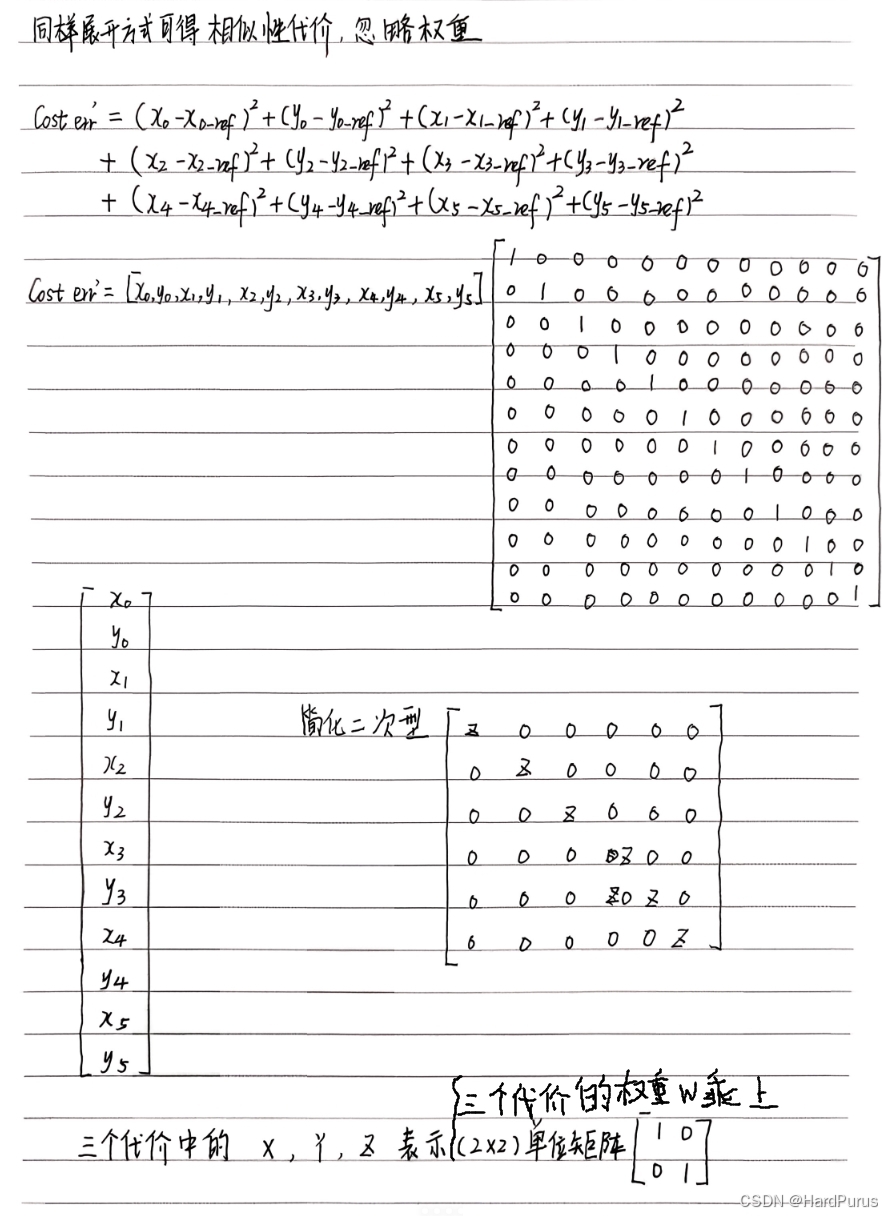 同样展开方式可得 相似性代价, 忽略权重
Cost err' = (x0-x0_ref)²+(y0-y0_ref)²+(x1-x1_ref)²+(y1-y1_ref)²
+ (x2-x2_ref)²+(y2-y2_ref)²+(x3-x3_ref)²+(y3-y3_ref)²
+ (x4-x4_ref)²+(y4-y4_ref)²+(x5-x5_ref)²+(y5-y5_ref)²
Cost err' = [x0,y0,x1,y1, x2,y2, x3,y3, x4,y4, x5,y5]
1 0 0 0 0 0 0 0 0 0 0 0
0 1 0 0 0 0 0 0 0 0 0 0
0 0 1 0 0 0 0 0 0 0 0 0
0 0 0 1 0 0 0 0 0 0 0 0
0 0 0 0 1 0 0 0 0 0 0 0
0 0 0 0 0 1 0 0 0 0 0 0
0 0 0 0 0 0 1 0 0 0 0 0
0 0 0 0 0 0 0 1 0 0 0 0
0 0 0 0 0 0 0 0 1 0 0 0
0 0 0 0 0 0 0 0 0 1 0 0
0 0 0 0 0 0 0 0 0 0 1 0
0 0 0 0 0 0 0 0 0 0 0 1
x0
y0
x1
y1
x2
y2
x3
y3
x4
y4
x5
y5
简化二次型
Z 0 0 0 0 0
0 Z 0 0 0 0
0 0 Z 0 0 0
0 0 0 Z 0 0
0 0 0 0 Z 0
0 0 0 0 0 Z
三个代价的权重W乘上
三个代价中的 X, Y, Z 表示 (2×2)单位矩阵
1 0
0 1
CSDN @HardPurus